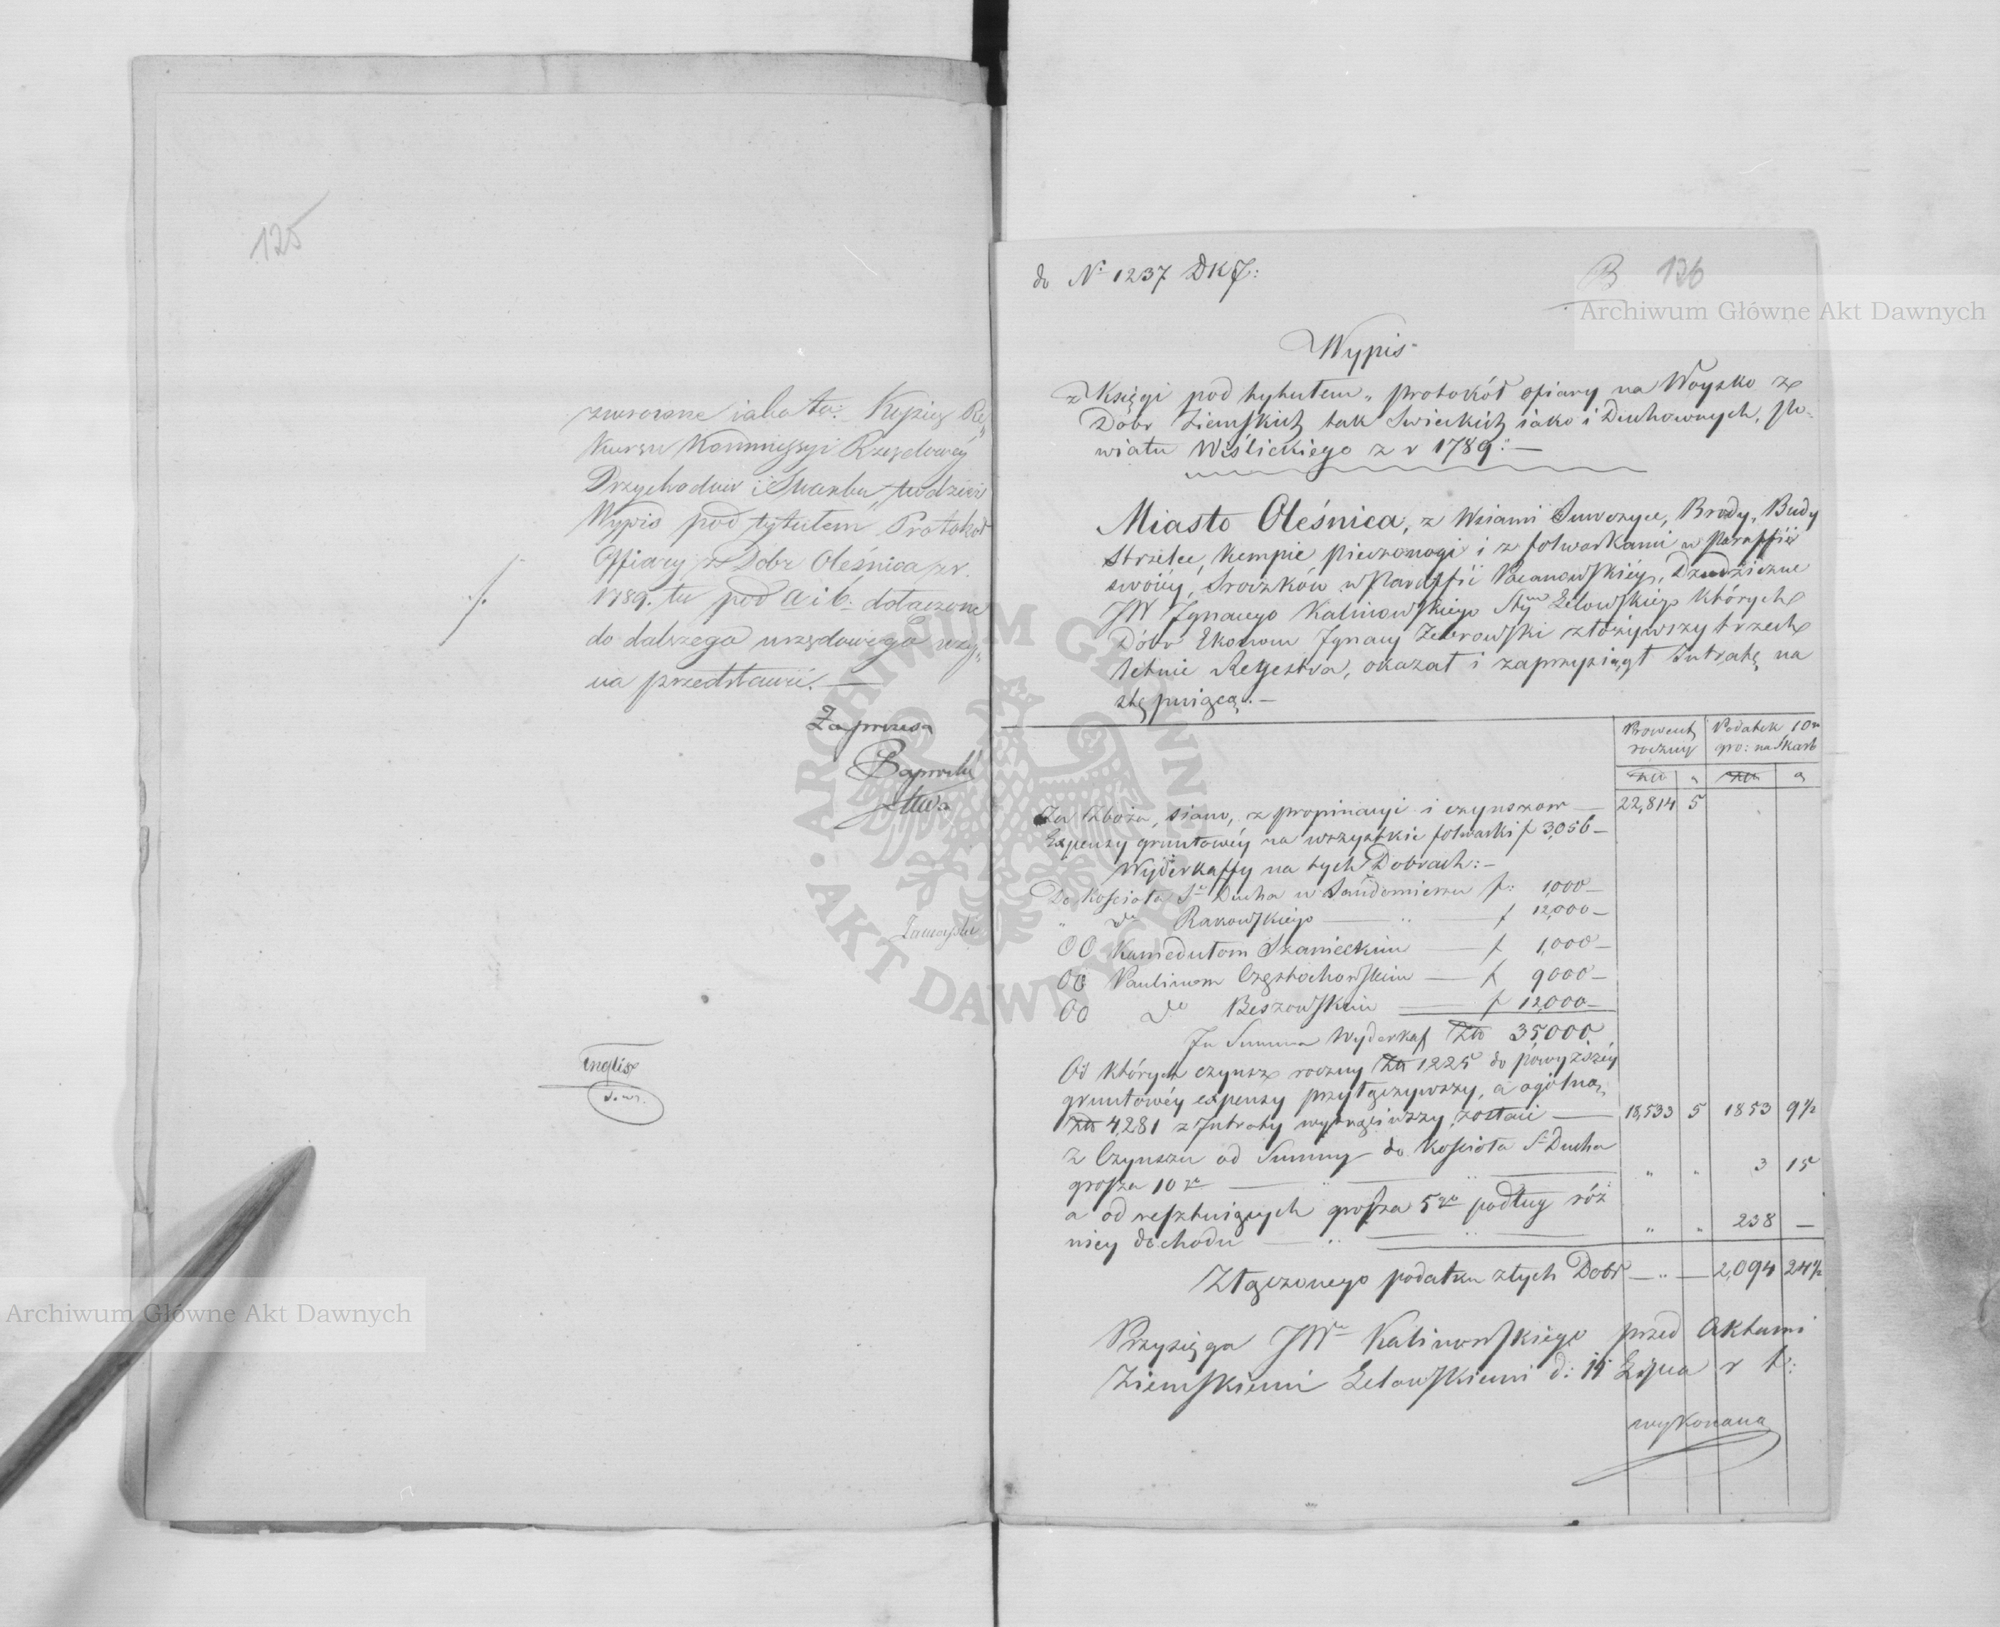 125
zwrócone iako to: Kopię Re„
kursu Kommissyi Rządowéy
Przychodów i Skarbu, tudzież
Wypis pod tytułem Protokół
Offiary z Dobr Oleśnica z r.
1789. tu pod a i b. dołączone
do dalszego urzędowego uży„
cia przedstawić. —
Za prezesa
do Nº 1237 DKJ:
B 126
Archiwum Główne Akt Dawnych
Wypis
z Księgi pod tytułem „ protokół ofiary na Woysko z
Dóbr Ziemskich tak Swieckich iako i Duchownych, Po-
wiatu Wiślickiego z r 1789. —
Miasto Oleśnica, z Wsiami Suwczyce, Brody, Budy
Strzelce, Kempie Pieczonogi i z folwarkami w Paraffii
swoiéy, Sroczków w Paraffii Pacanowskiéy, Dziedziczne
JW Ignacego Kalinowskiego Żelowskiego których
Dóbr Ekonom Ignacy Zebrowski złożywszy trzech
letnie Regestra, okazał i zaprzysiągł Intratę na
stępuiącą. —
Prowent roczny
Podatek 10ty
po: na Skarb
Złł g Złł g
Za Zboża, siano, z propinacyi i czynszow — 22,814 5
Expensy gruntowéy na wszystkie folwarki f 3,056 —
Wyderkaffy na tych Dobrach: —
Do Kościoła S° Ducha w Sandomierzu f: 1,000 —
„ do Rakowskiego — „ — f 12,000 —
OO Kamedułom Szanieckim — f 1,000 —
OO Paulinom Częstochowskim — f 9000 —
OO do Beszowskim — f 12,000 —
In Summa Wyderkaf Złł 35,000
Od których czynsz roczny Złł 1225 do powyższéy
gruntowéy expensy przyłączywszy, a ogólną
Złł 4,281 z Intraty wytrąciwszy, zostaie — 18,533 5 1853 9½
Z Czynszu od Summy do Kościoła S° Ducha
grosza 10go — „ „ „ „ 3 15
a od resztuiących grosza 5go podług róż
nicy dochodu — „ „ „ „ 238 —
Złączonego podatku z tych Dobr — „ — 2,094 24½
Przysięga JWo Kalinowskiego przed Aktami
Ziemskiemi Żelowskiemi d: 14 Lipca r t:
wykonana
Archiwum Główne Akt Dawnych
ARCHIWUM GŁÓWNE · AKT DAWNYCH ·